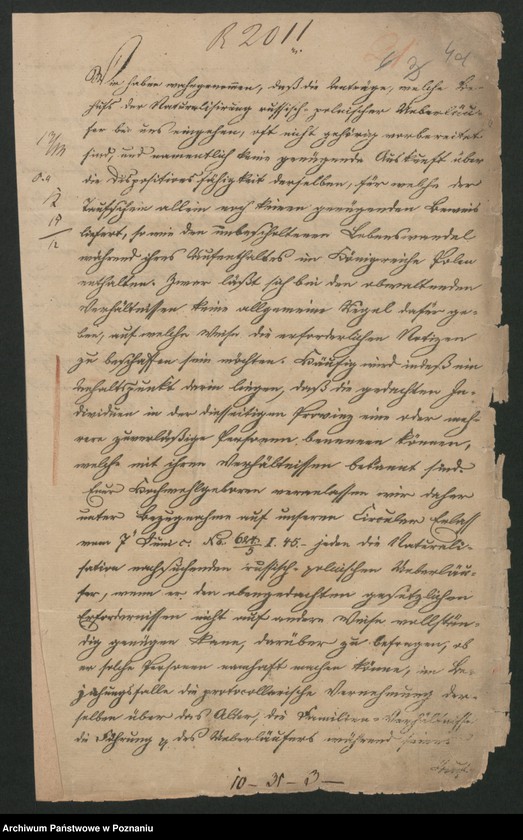 R 2011
Wir haben wahrgenommen, daß die Anträge, welche Be-
hufs der Naturalisirung russisch-polnischer Ueberläu-
fer bei uns eingehen, oft nicht gehörig vorbereitet
sind, und namentlich keine genügende Auskunft über
die Dispositionsfähigkeit derselben, für welche der
Taufschein allein noch keinen genügenden Beweis
liefert, so wie den unbescholtenen Lebenswandel
während ihres Aufenthaltes im Königreiche Polen
enthalten. Zwar läßt sich bei den obwaltenden
Verhältnissen keine allgemeine Regel dafür ge-
ben, auf welche Weise die erforderlichen Notizen
zu beschaffen sein möchten. Häufig wird indeß ein
Anhaltspunkt darin liegen, daß die gedachten In-
dividuen in der diesseitigen Provinz eine oder meh-
rere zuverläßige Personen benennen können,
welche mit ihren Verhältnissen bekannt sind.
Euer Hochwohlgeboren veranlassen wir daher
unter Bezugnahme auf unseren Circular Erlaß
vom 7 Juni c. No. I. 45. jeden die Naturali-
sation nachsuchenden russisch-polnischen Ueberläu-
fer, wenn er den obengedachten gesetzlichen
Erfordernissen nicht auf andere Weise vollstän-
dig genügen kann, darüber zu befragen, ob
er solche Personen namhaft machen könne, im Be-
jahungsfalle die protocollarische Vernehmung der-
selben über das Alter, die Familien-Verhältnisse
die Führung des Ueberläufers während seines
10 - 31 - 3 -
Archiwum Państwowe w Poznaniu